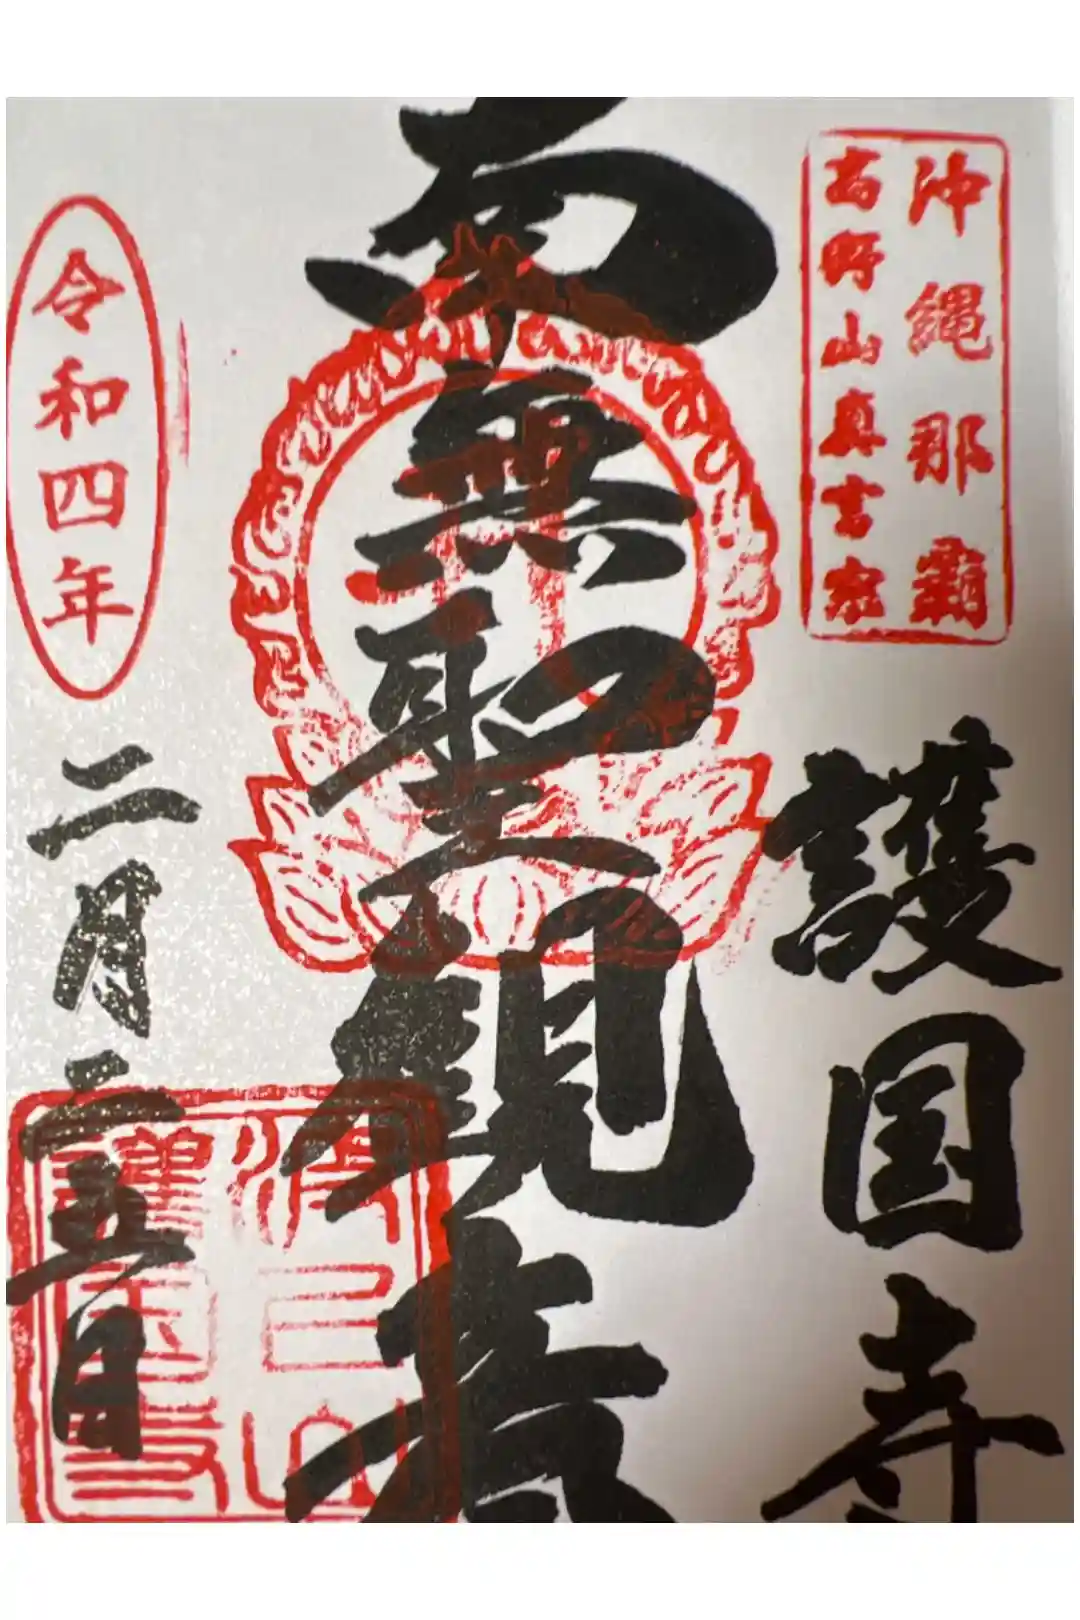 沖縄那覇
高野山真言宗
護国寺
南無聖観音
令和四年
二月二五日
護国寺